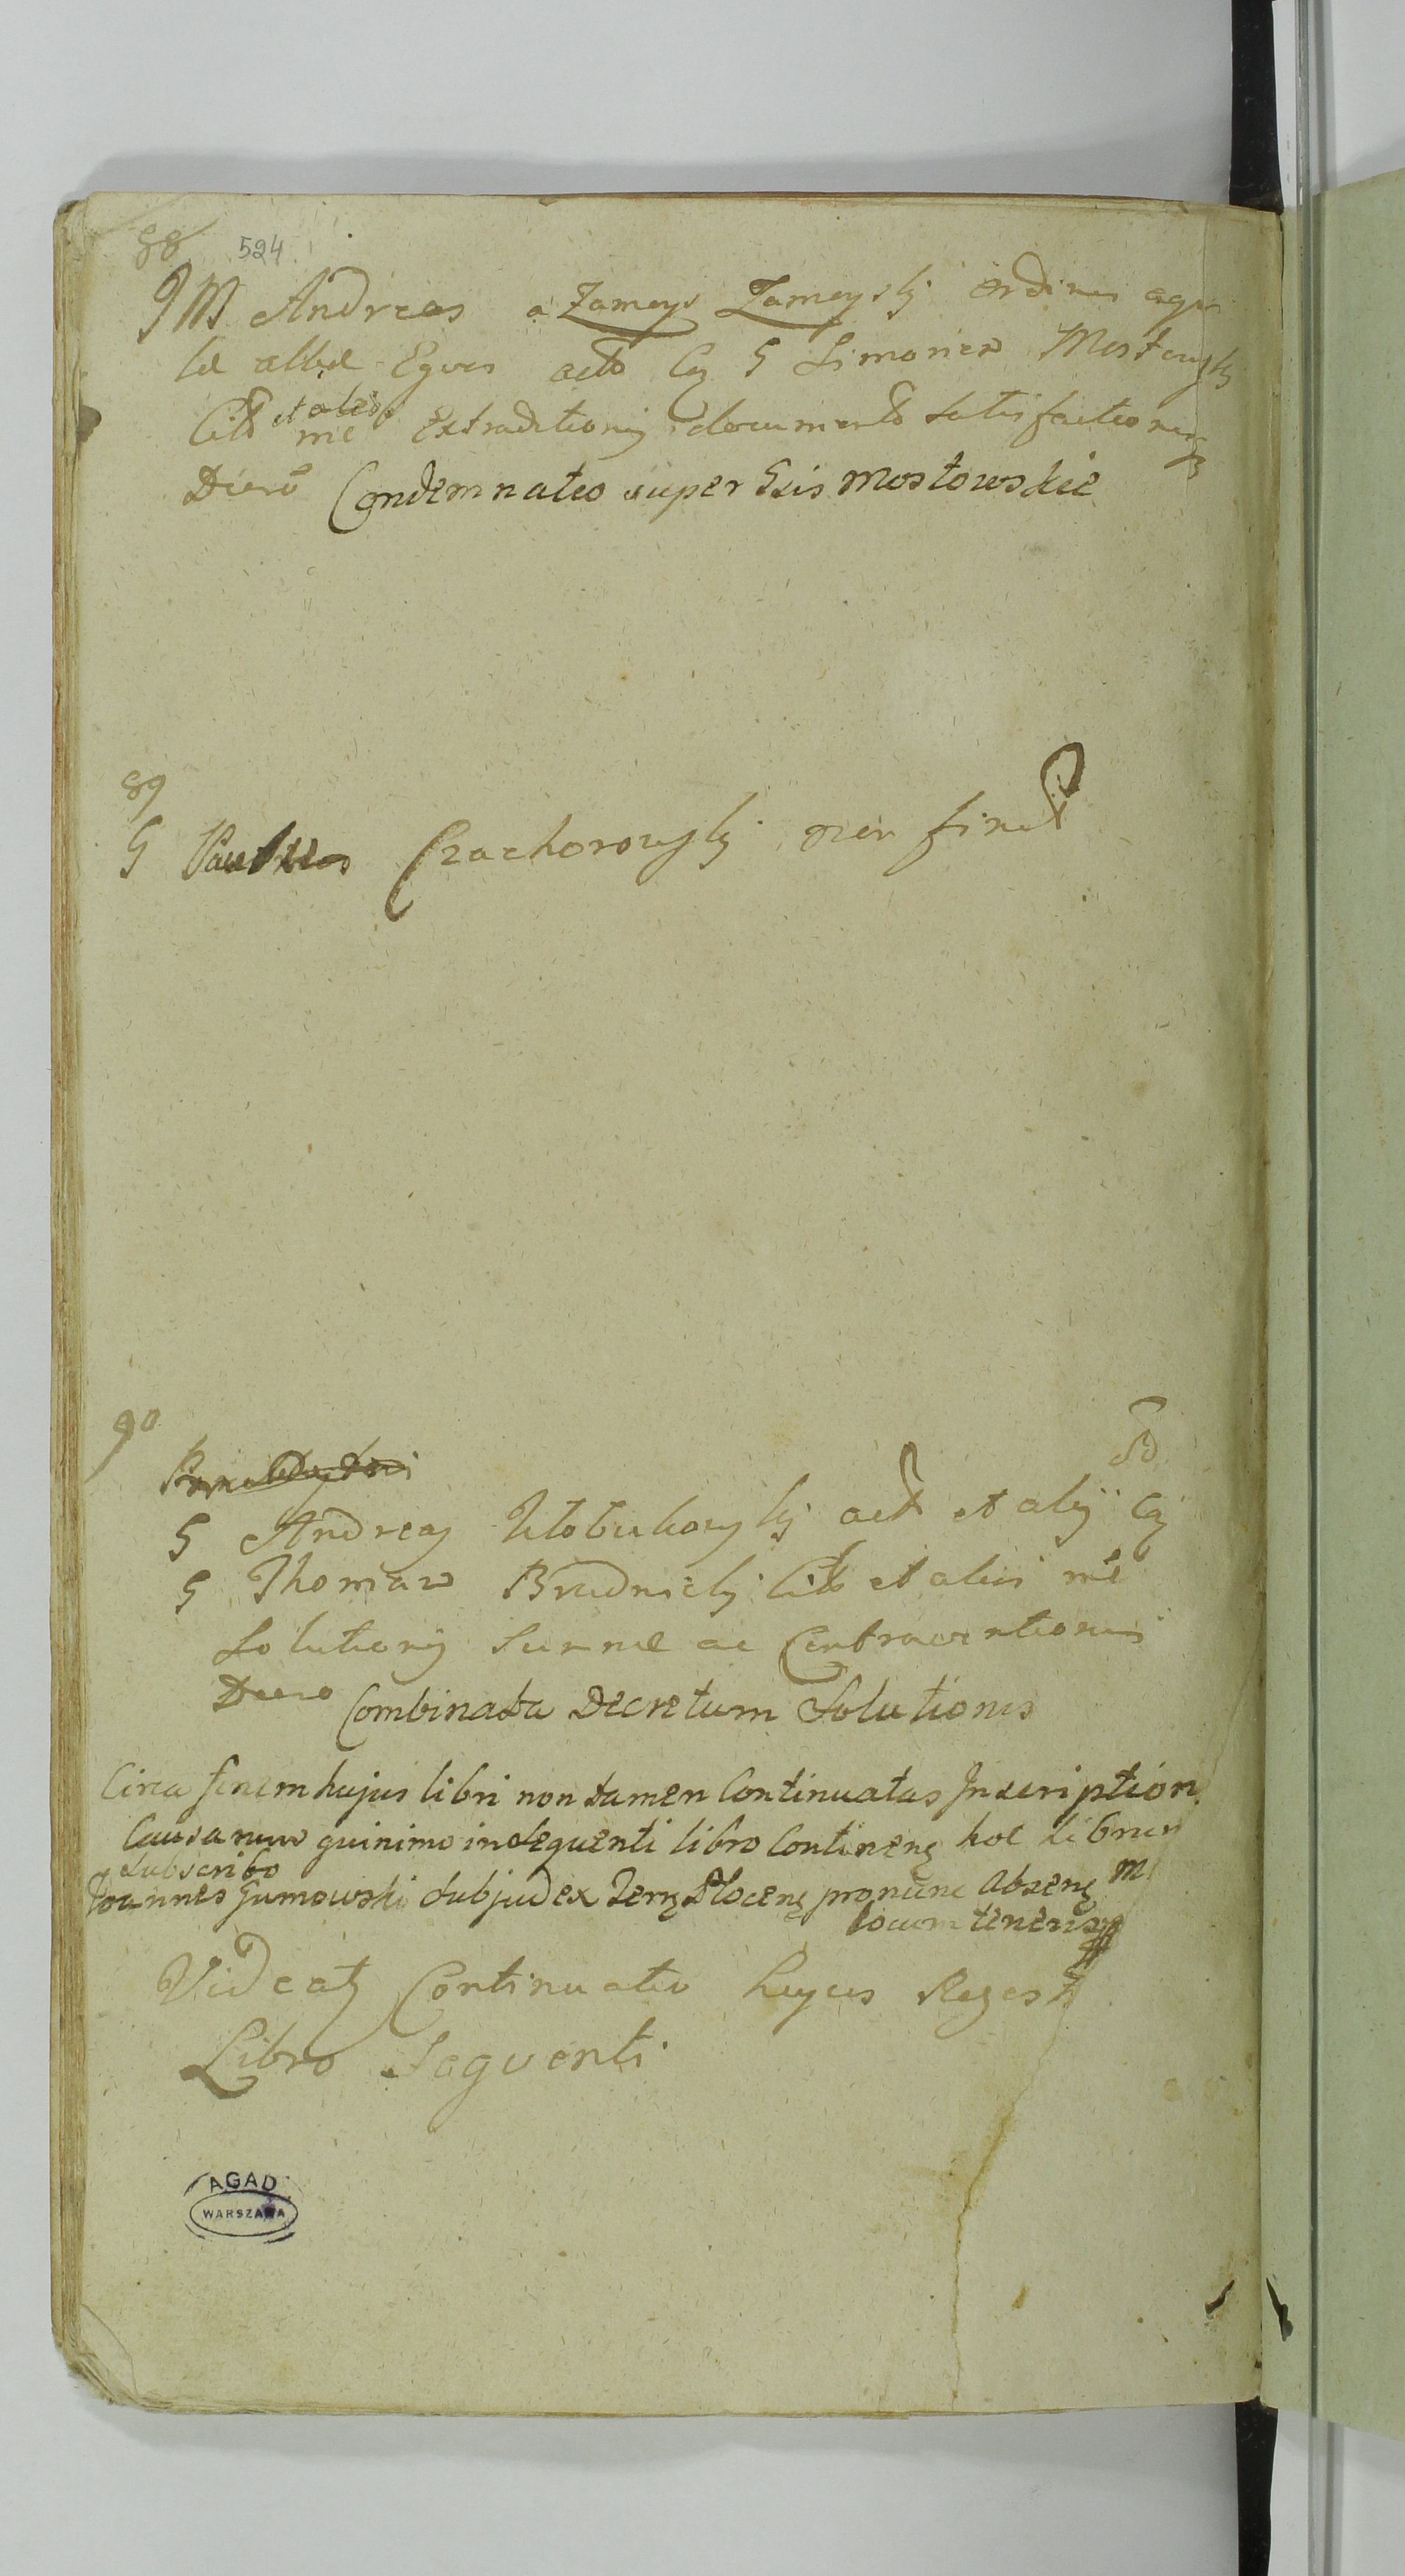 88 524
JM Andreas a Zameys Zameyskj Ordinis aqui
læ albæ Eques actor Cą G Simonem Mostowskj
Citt et alios me Extraditionis documentor Satisfactionisq
Dicio Condemnatio super Gsis Mostowskie
89
G Paulus Czachorowskj non find
90
G Andreas Kłobukowskj act et alij Cą
G Thomam Brudnickj Citt et alios me
Solutionis Summæ ac Contraventionis
Dicio Combinata Decretum Solutionis
Circa finem hujus libri non tamen Continuatas Inscription
Causarum quinimo in sequenti libro Continenę hoc librum
subscribo
Joannes Gumowski Subjudex Terrę Plocenę pro nunc Absenę M
locum tenens
Videatz Continuatio hujus Regest
Libro Sequenti
AGAD
WARSZAWA